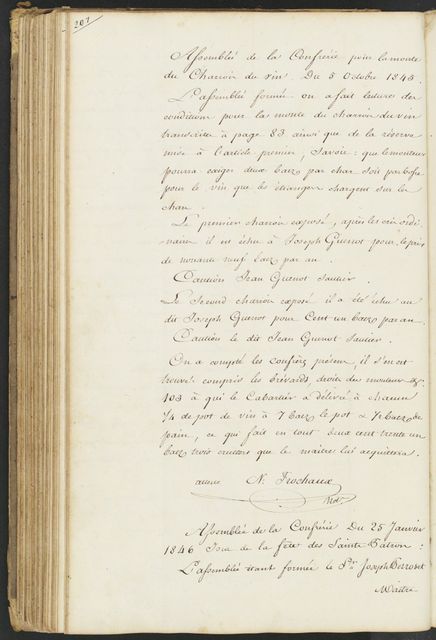 207
Assemblée de la Confrérie pour la monte
du Charroi du vin Du 5 Octobre 1845.
L'assemblée formée on a fait lectures des
conditions pour la monte du charroi du vin
transcrites à page 83 ainsi que de la réserve
mise à l'article premier, Savoir: que le monteur
pourra exiger deux batz par char soit par bosse
pour le vin que les étrangers chargent sur le
char.
Le premier charroi exposé, après les cris ordi-
naires il est échu à Joseph Guenot pour le prix
de nonante neuf batz par an.
Caution Jean Guenot Sautier.
Le second charroi exposé il a été échu au
dit Joseph Guenot pour Cent un batz par an.
Caution le dit Jean Guenot Sautier.
On a compté les confrères présens, il s'en est
trouvé compris les brévards, droits du monteur &c
103 à qui le Cabartier a délivré à chacun
1/4 de pot de vin à 7 batz le pot & 1/2 batz de
pain, ce qui fait en tout deux cent trente un
batz trois crutters que le maître lui acquittera.
N. Frochaux
Not.
Assemblée de la Confrérie Du 25 Janvier
1846 Jour de la fête des Saints Patron:
L'assemblée étant formée le Sr. Joseph Perroset
Maître